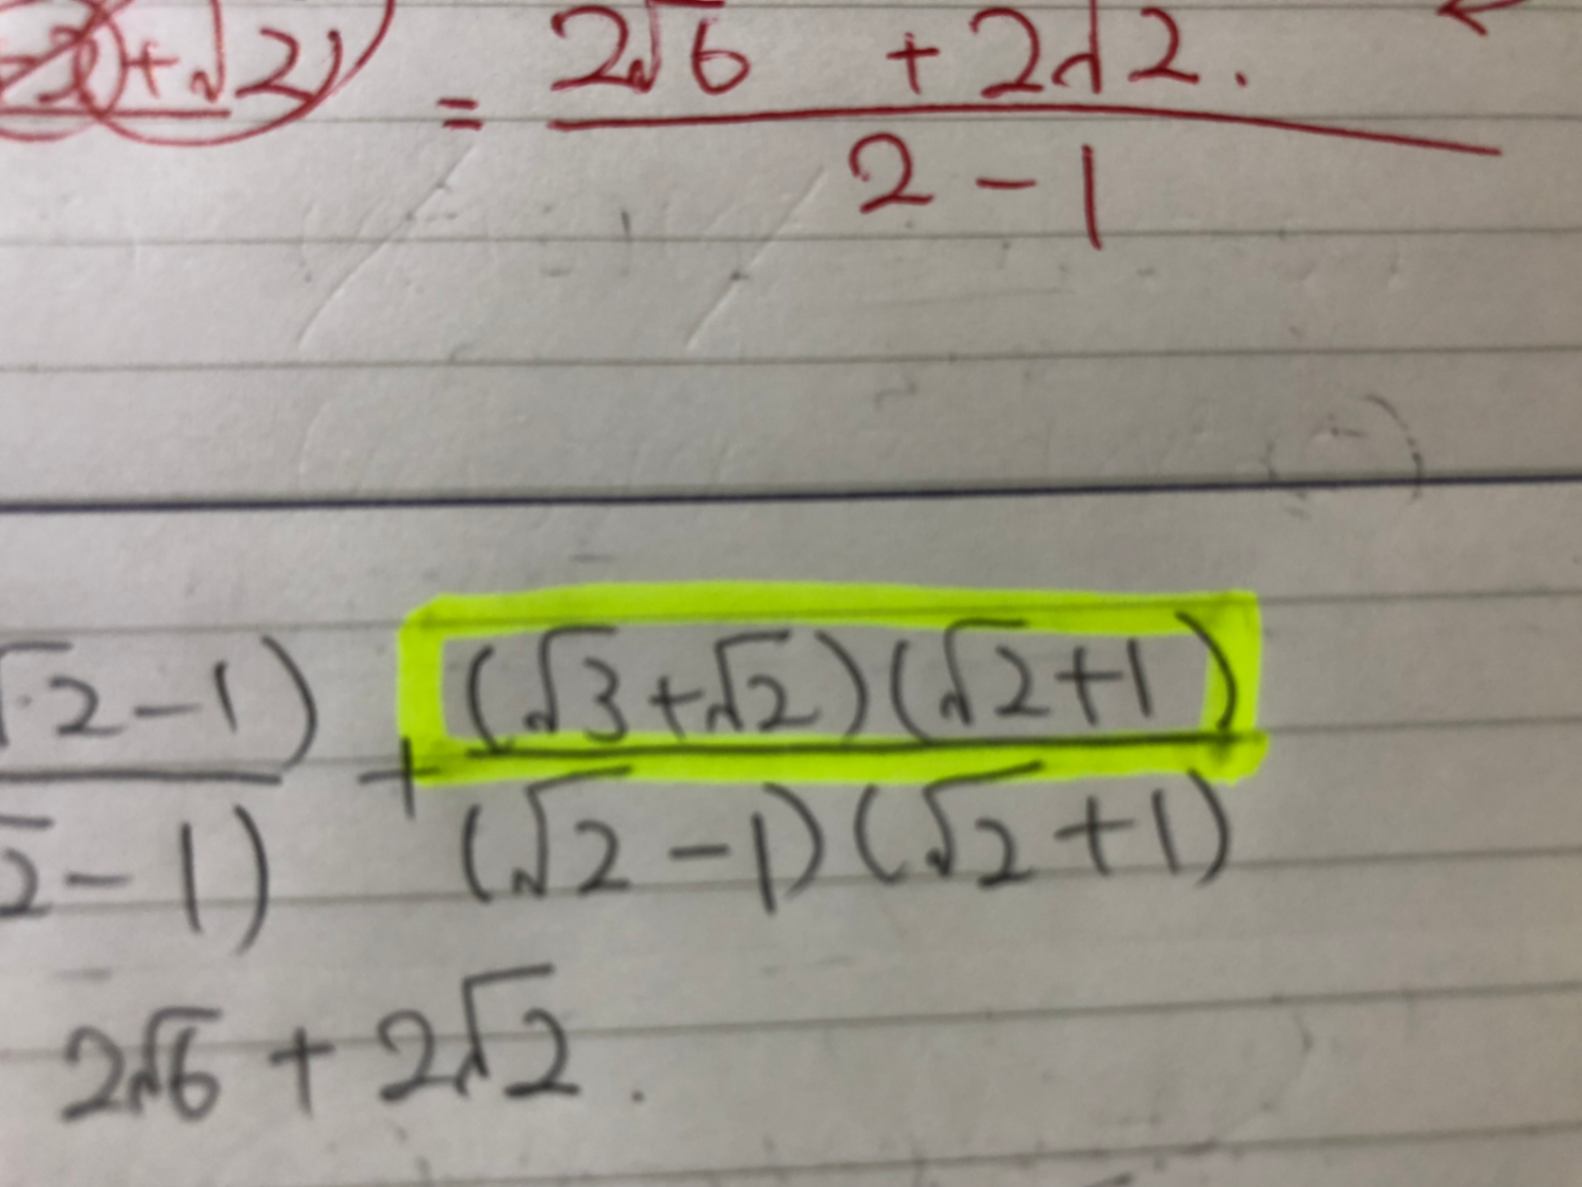 +√2) = 2√6 + 2√2.
2 - 1
√2-1) + (√3+√2)(√2+1)
2-1) (√2-1)(√2+1)
2√6 + 2√2.